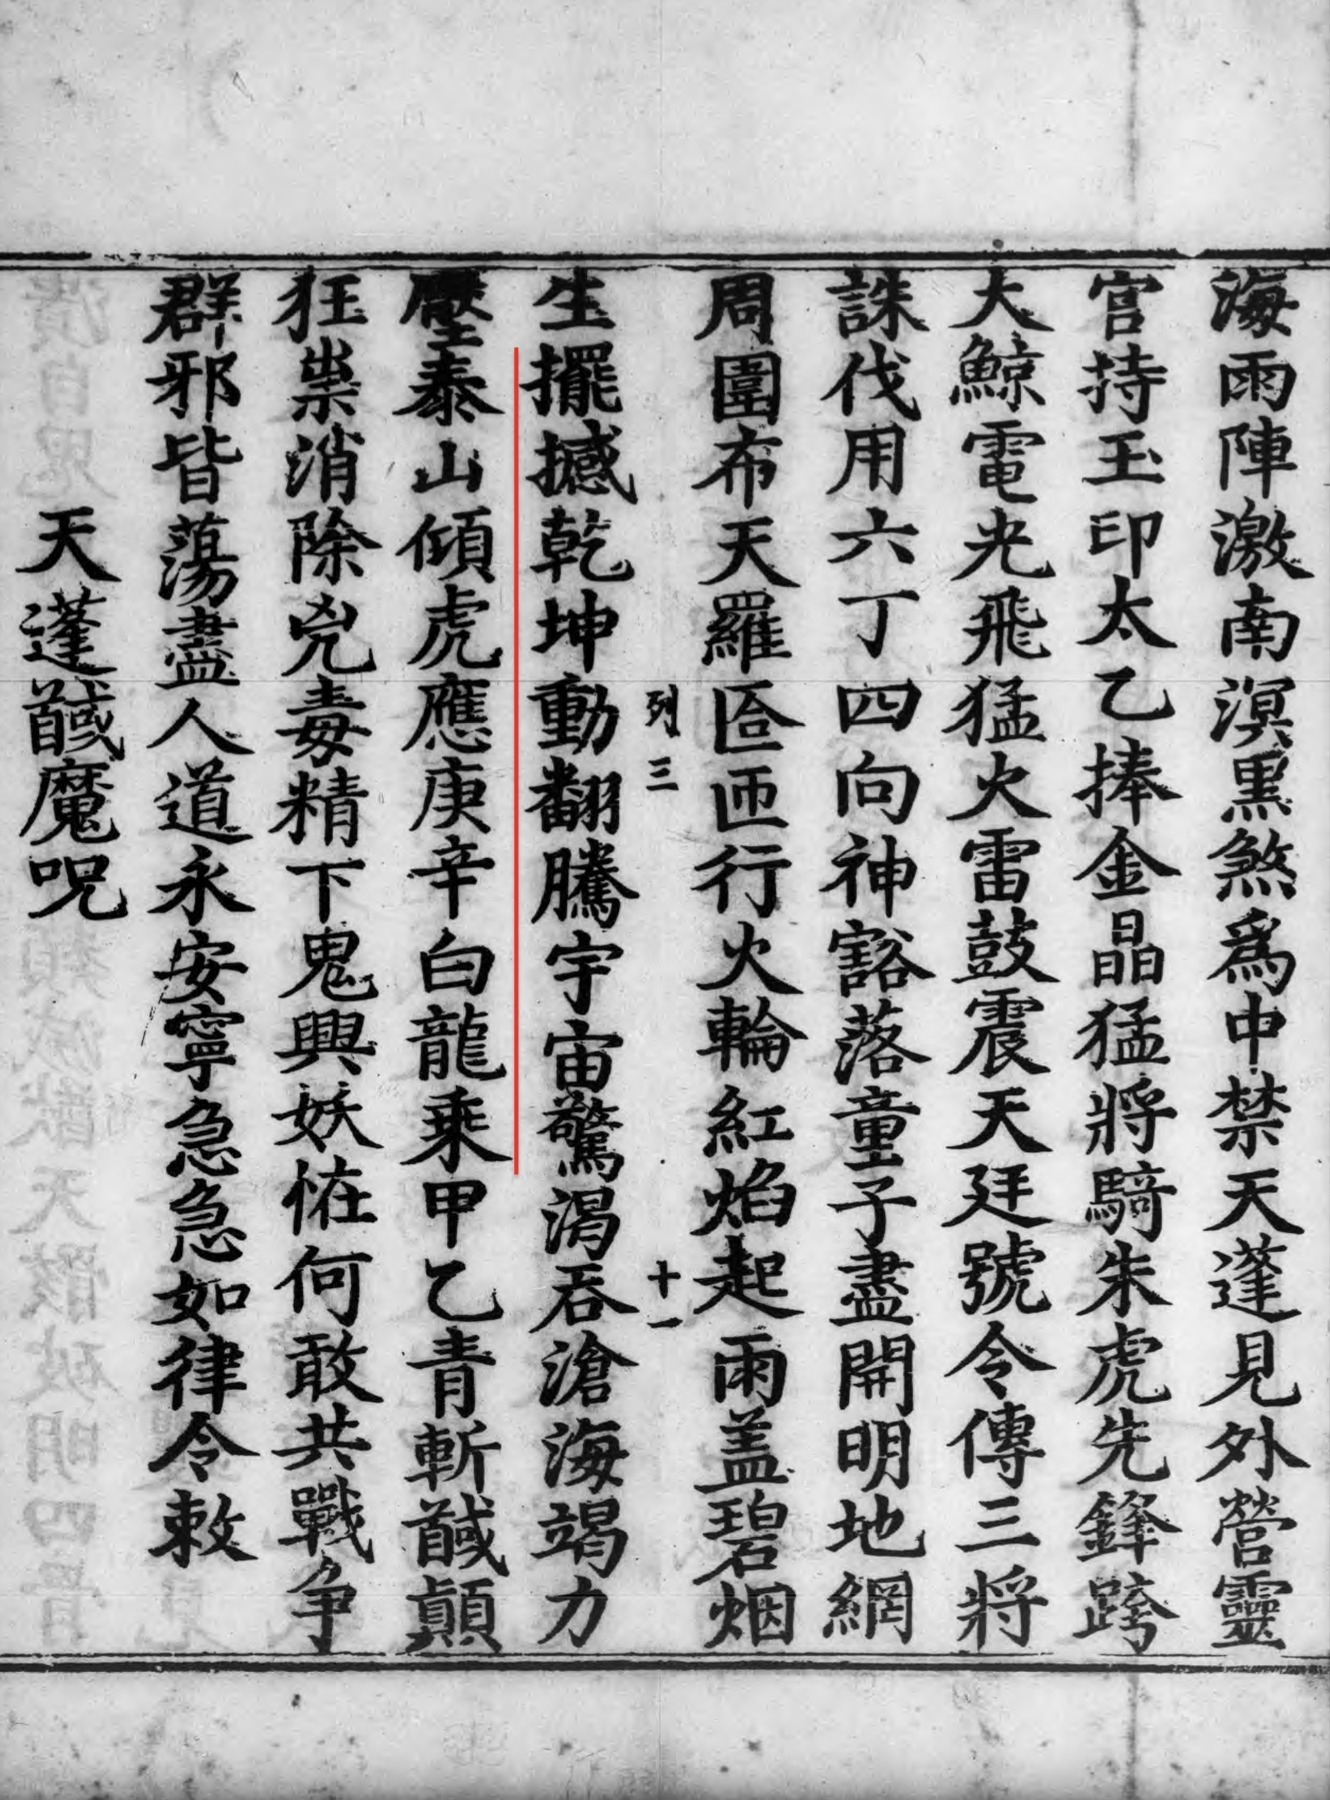 海雨陣激南溟黒煞爲中禁天蓬見外營靈
官持玉印太乙捧金晶猛將騎朱虎先鋒跨
大鯨電光飛猛火雷鼓震天廷號令傳三將
誅伐用六丁四向神豁落童子盡開明地網
周圍布天羅匼匝行火輪紅焰起雨盖碧烟
列三 十一
生擺撼乾坤動翻騰宇宙驚渴吞滄海竭力
壓泰山傾虎應庚辛白龍乗甲乙青斬馘顛
狂祟消除兇毒精下鬼興妖恠何敢共戰争
群邪皆蕩盡人道永安寧急急如律令敕
天蓬馘魔呪